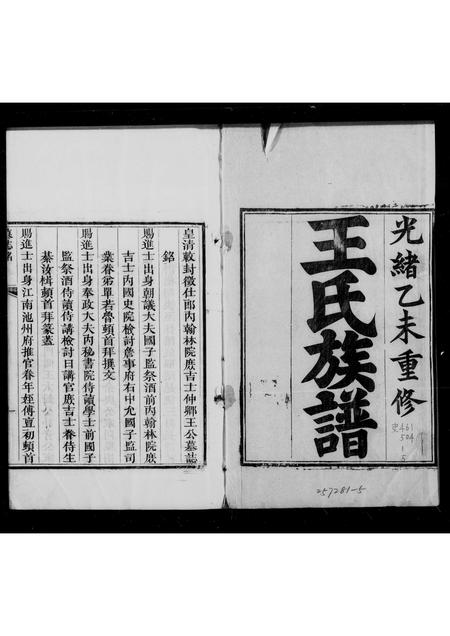 光緒乙未重修
王氏族譜
史461
504
1-5
257281-5
皇清敕封徵仕郎內翰林院庶吉士仲卿王公墓誌
銘
賜進士出身朝議大夫國子監祭酒前內翰林院庶
吉士內國史院檢討詹事府右中允國子監司
業眷弟單若魯頓首拜撰文
賜進士出身奉政大夫內秘書院侍讀學士前國子
監祭酒侍讀侍講檢討日講官庶吉士眷侍生
綦汝楫頓首拜篆蓋
賜進士出身江南池州府推官眷年姪傅亶初頓首
墓誌銘